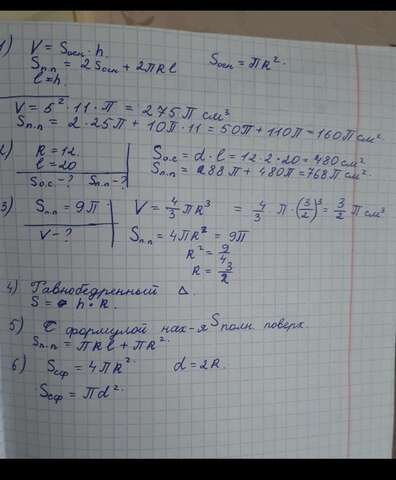 1) V = Sосн · h. Sосн = πR².
Sп.п = 2Sосн + 2πRl
l = h.
V = 5² · 11 · π = 275π см³
Sп.п = 2 · 25π + 10π · 11 = 50π + 110π = 160π см².
2) R = 12 Sо.с = d · l = 12 · 2 · 20 = 480 см².
l = 20 Sп.п = 288π + 480π = 768π см².
Sо.с - ? Sп.п - ?
3) Sп.п = 9π V = 4/3 πR³ = 4/3 π · (3/2)³ = 3/2 π см³
V - ? Sп.п = 4πR² = 9π
R² = 9/4
R = 3/2
4) Равнобедренный Δ.
S = h · R.
5) С формулой нах-я Sполн. поверх.
Sп.п = πRl + πR².
6) Sсф = 4πR². d = 2R.
Sсф = πd².